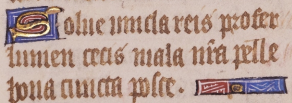 Solue uincla reis profer
lumen cecis mala nr̃a pelle
bona cuncta posce.